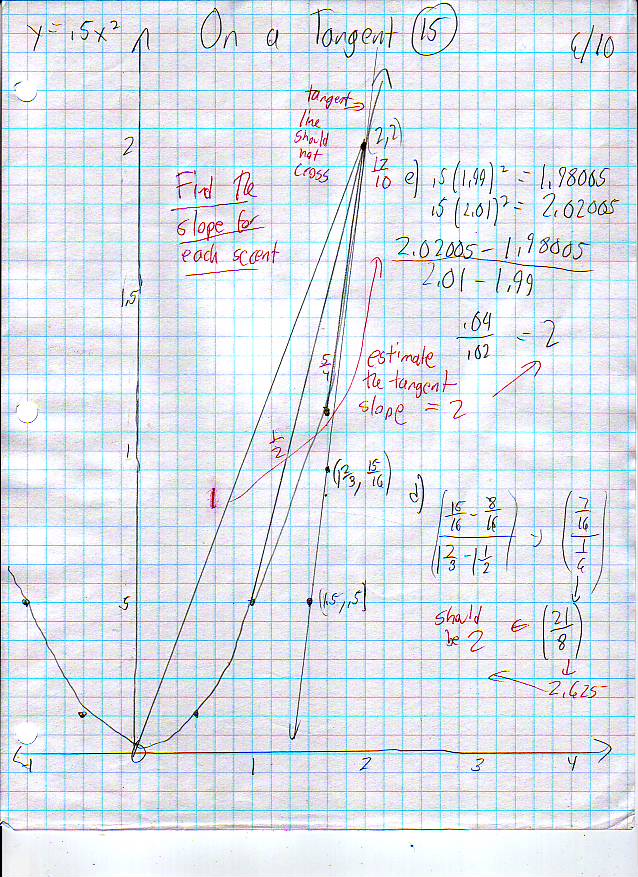 y = .5x² On a Tangent 15
6/10
tangent
line
should
not
cross
(2,2)
2
12/10
Find the
slope for
each secent
e) .5(1.99)² = 1.98005
.5(2.01)² = 2.02005
(2.02005 - 1.98005)/(2.01 - 1.99)
1.5
.04/.02 = 2
5/4
estimate
the tangent
slope = 2
1
1/2
(1 2/3, 15/16)
1
d) ((15/16 - 8/16)/(1 2/3 - 1 1/2)) ((7/16)/(1/6))
.5
(1.5, .5]
should
be 2
(21/8)
2.625
-1 1 2 3 4